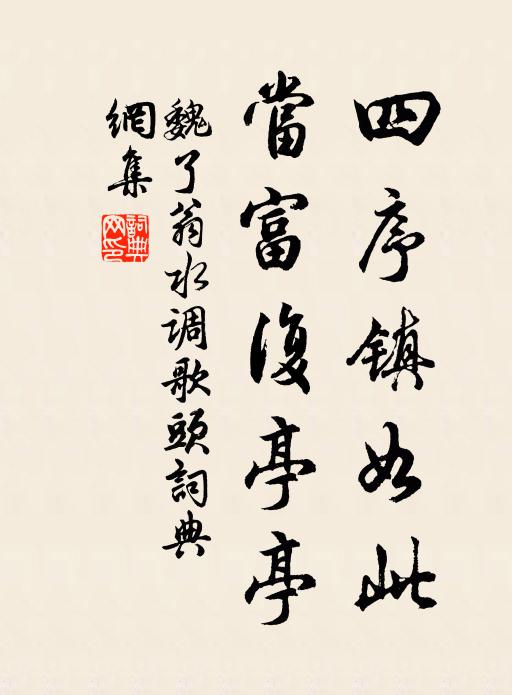 四序镇如此
當富復亭亭
魏了翁水调歌頭詞典
網集
詞典
网印